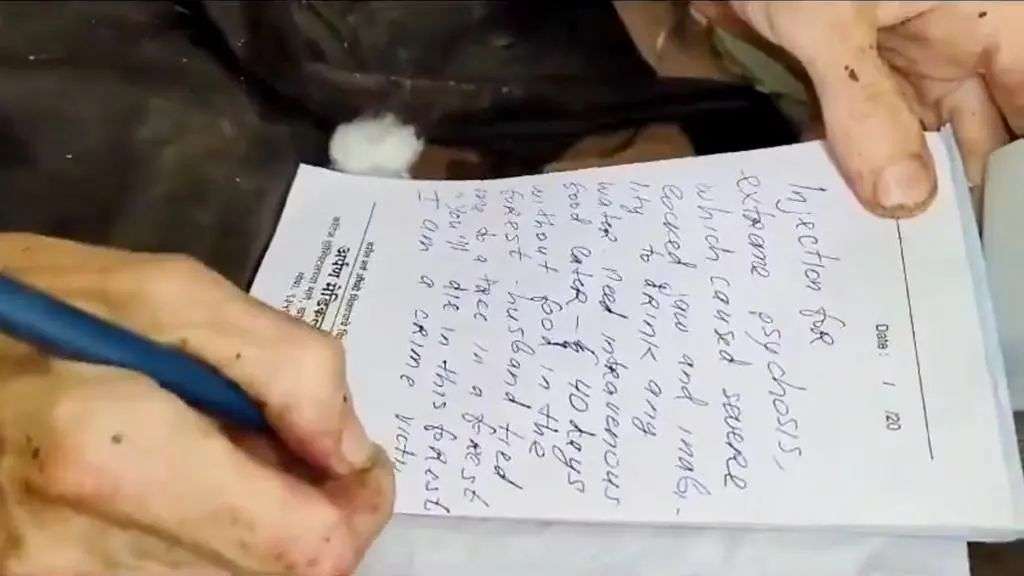 Date: / /20
Injection for
extreme psychosis,
which caused severe
locked jaw and inabi-
lity to drink any
water. Need intravenous
food enter - 40 days
without food in the
forest. Husband tied
me to a tree in a forest
n you'll die in this forest
I am a crime victi